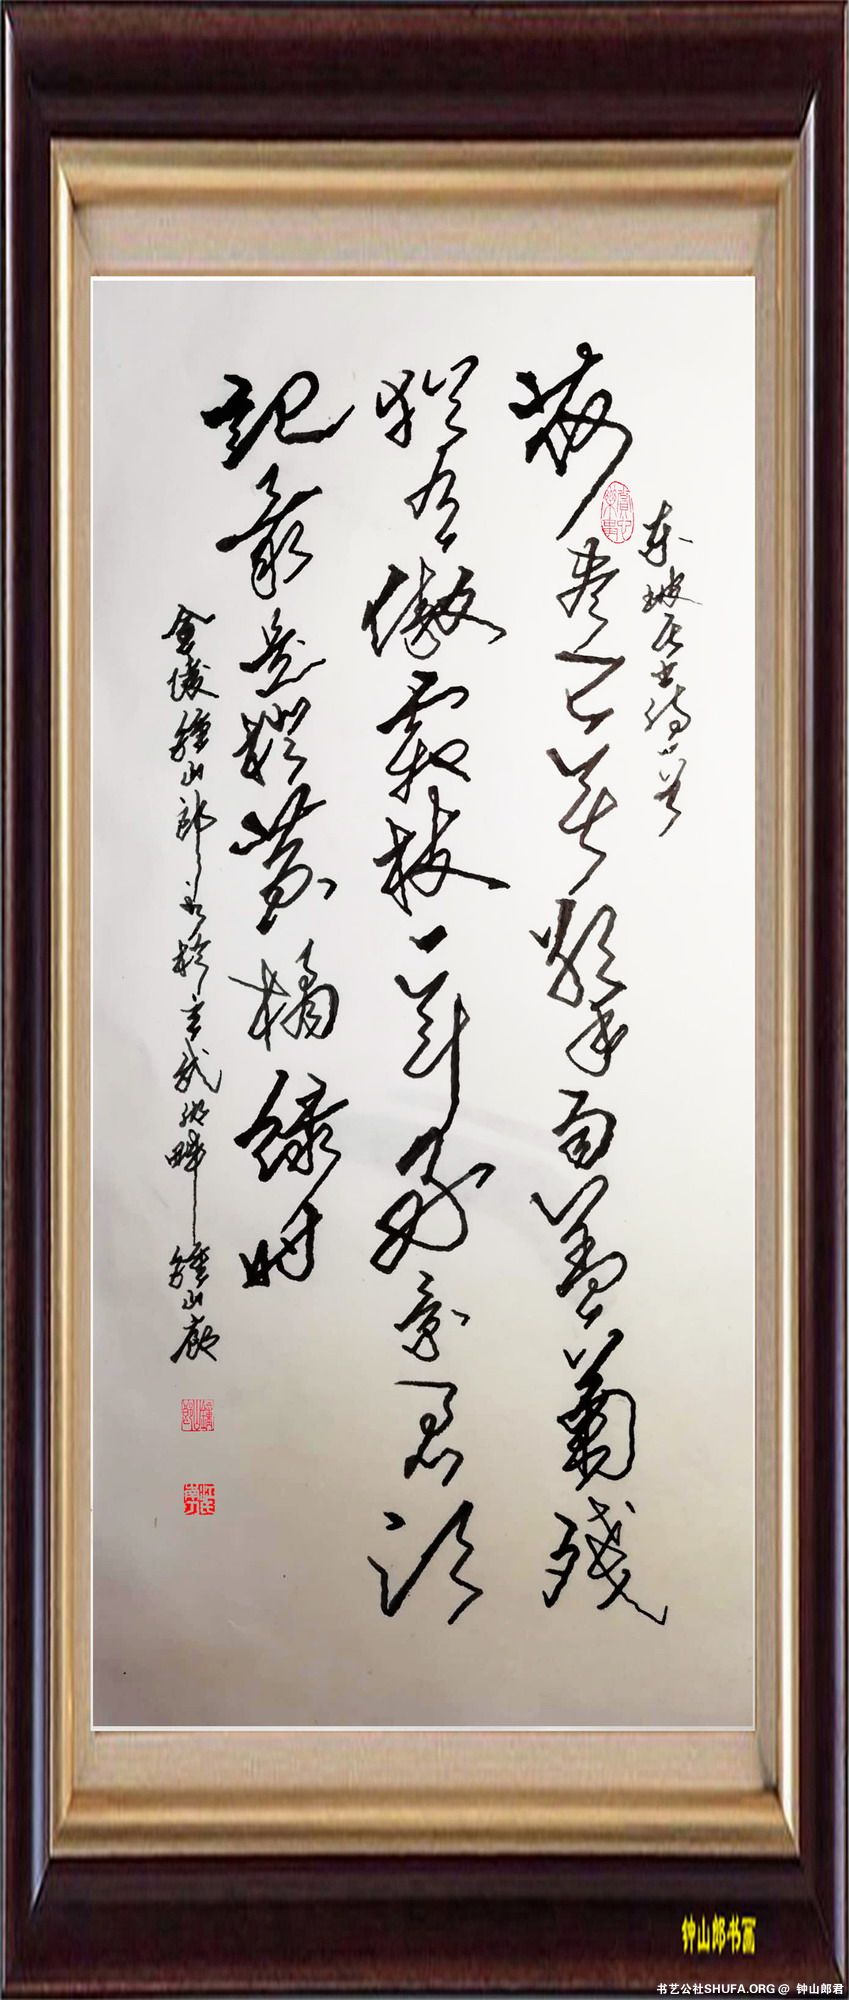 东坡居士诗一首
荷尽已无擎雨盖菊残
犹有傲霜枝一年好景君须
記最是橙黄橘緑时
金陵鍾山郎书於玄武湖畔鍾山
钟山郎书画
书艺公社SHUFA.ORG @ 钟山郎君